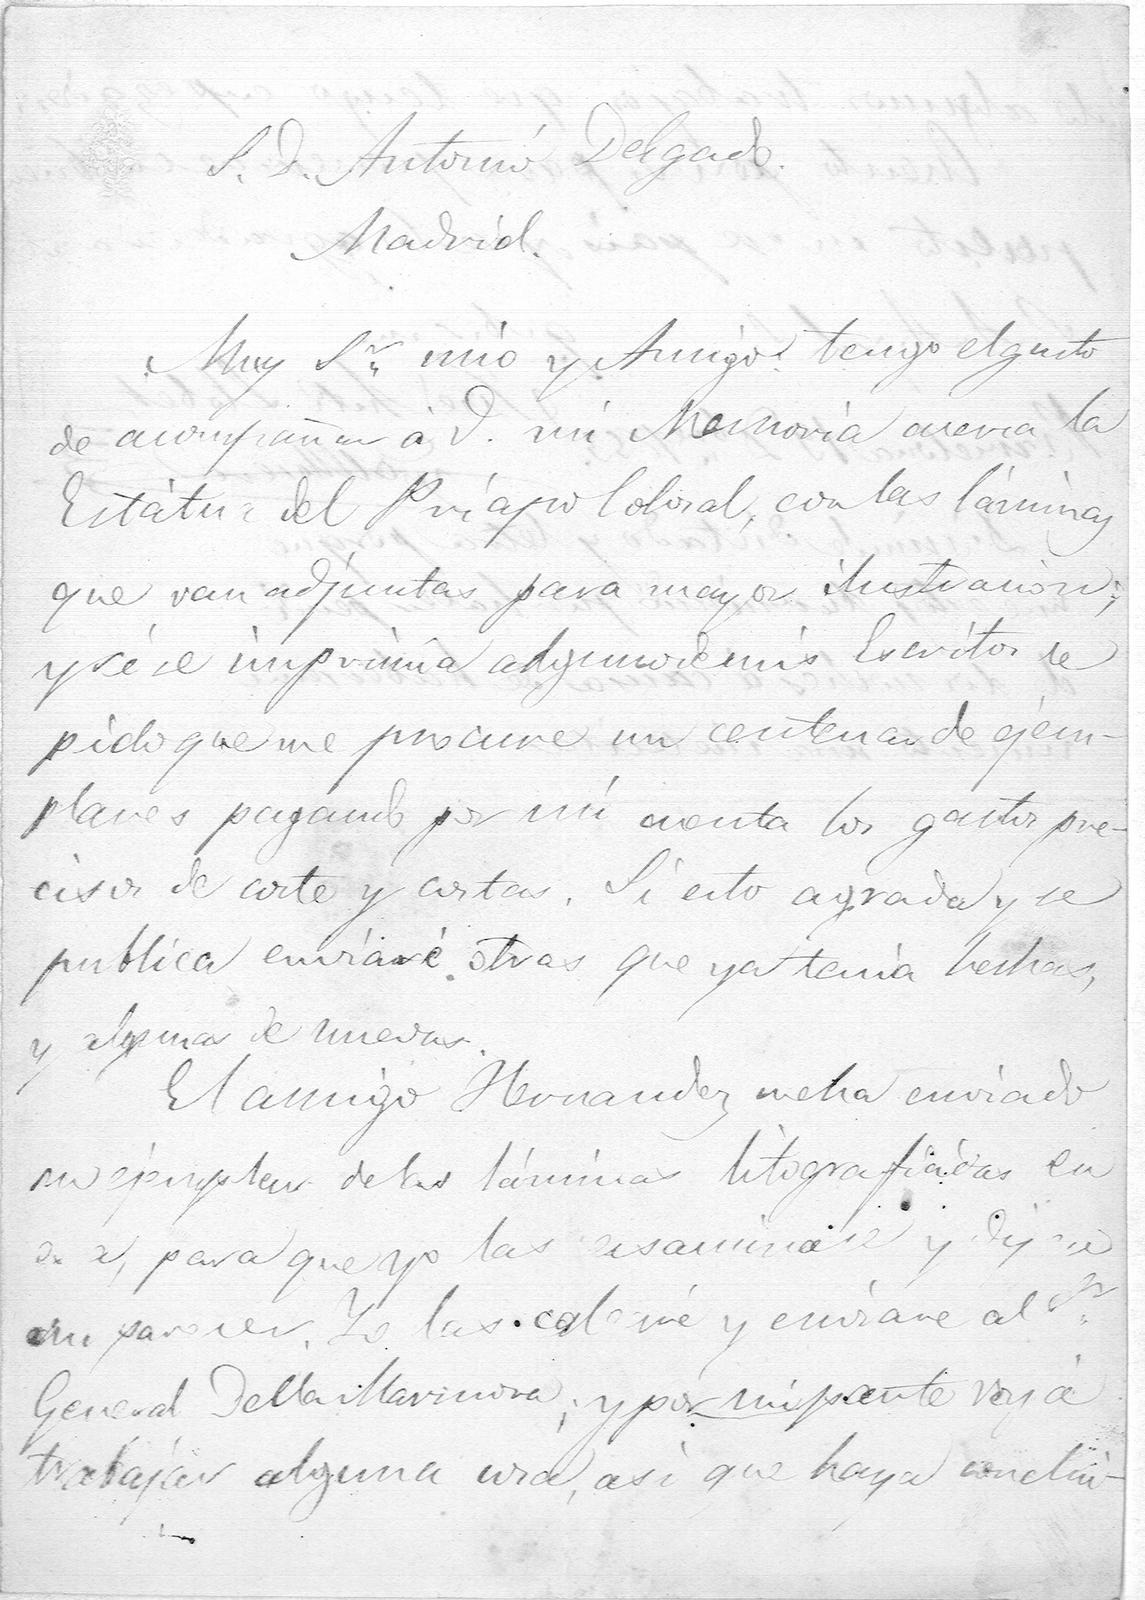 S. D. Antonio Delgado.
Madrid.
Muy Sr. mio y Amigo: tengo el gusto
de acompañar à V. mi Memoria acerca la
Estátua del Príapo Colosal, con las láminas
que van adjuntas para mayor ilustracion;
y si se imprimia alguno de mis Escritos le
pido que me procure un centenar de ejem-
plares pagando por mi cuenta los gastos pre-
cisos de corte y costas. Si esto agrada y se
publica enviaré otras que ya tenia hechas,
y algunas de nuevas.
El amigo Hernandez me ha enviado
un ejemplar de las láminas litografiadas en
para que yo las esaminase y dijese
mi parecer. Yo las y enviaré al Sr.
General Della Marmora; y por mi parte voy á
trabajar alguna cosa, asi que haya conclui-